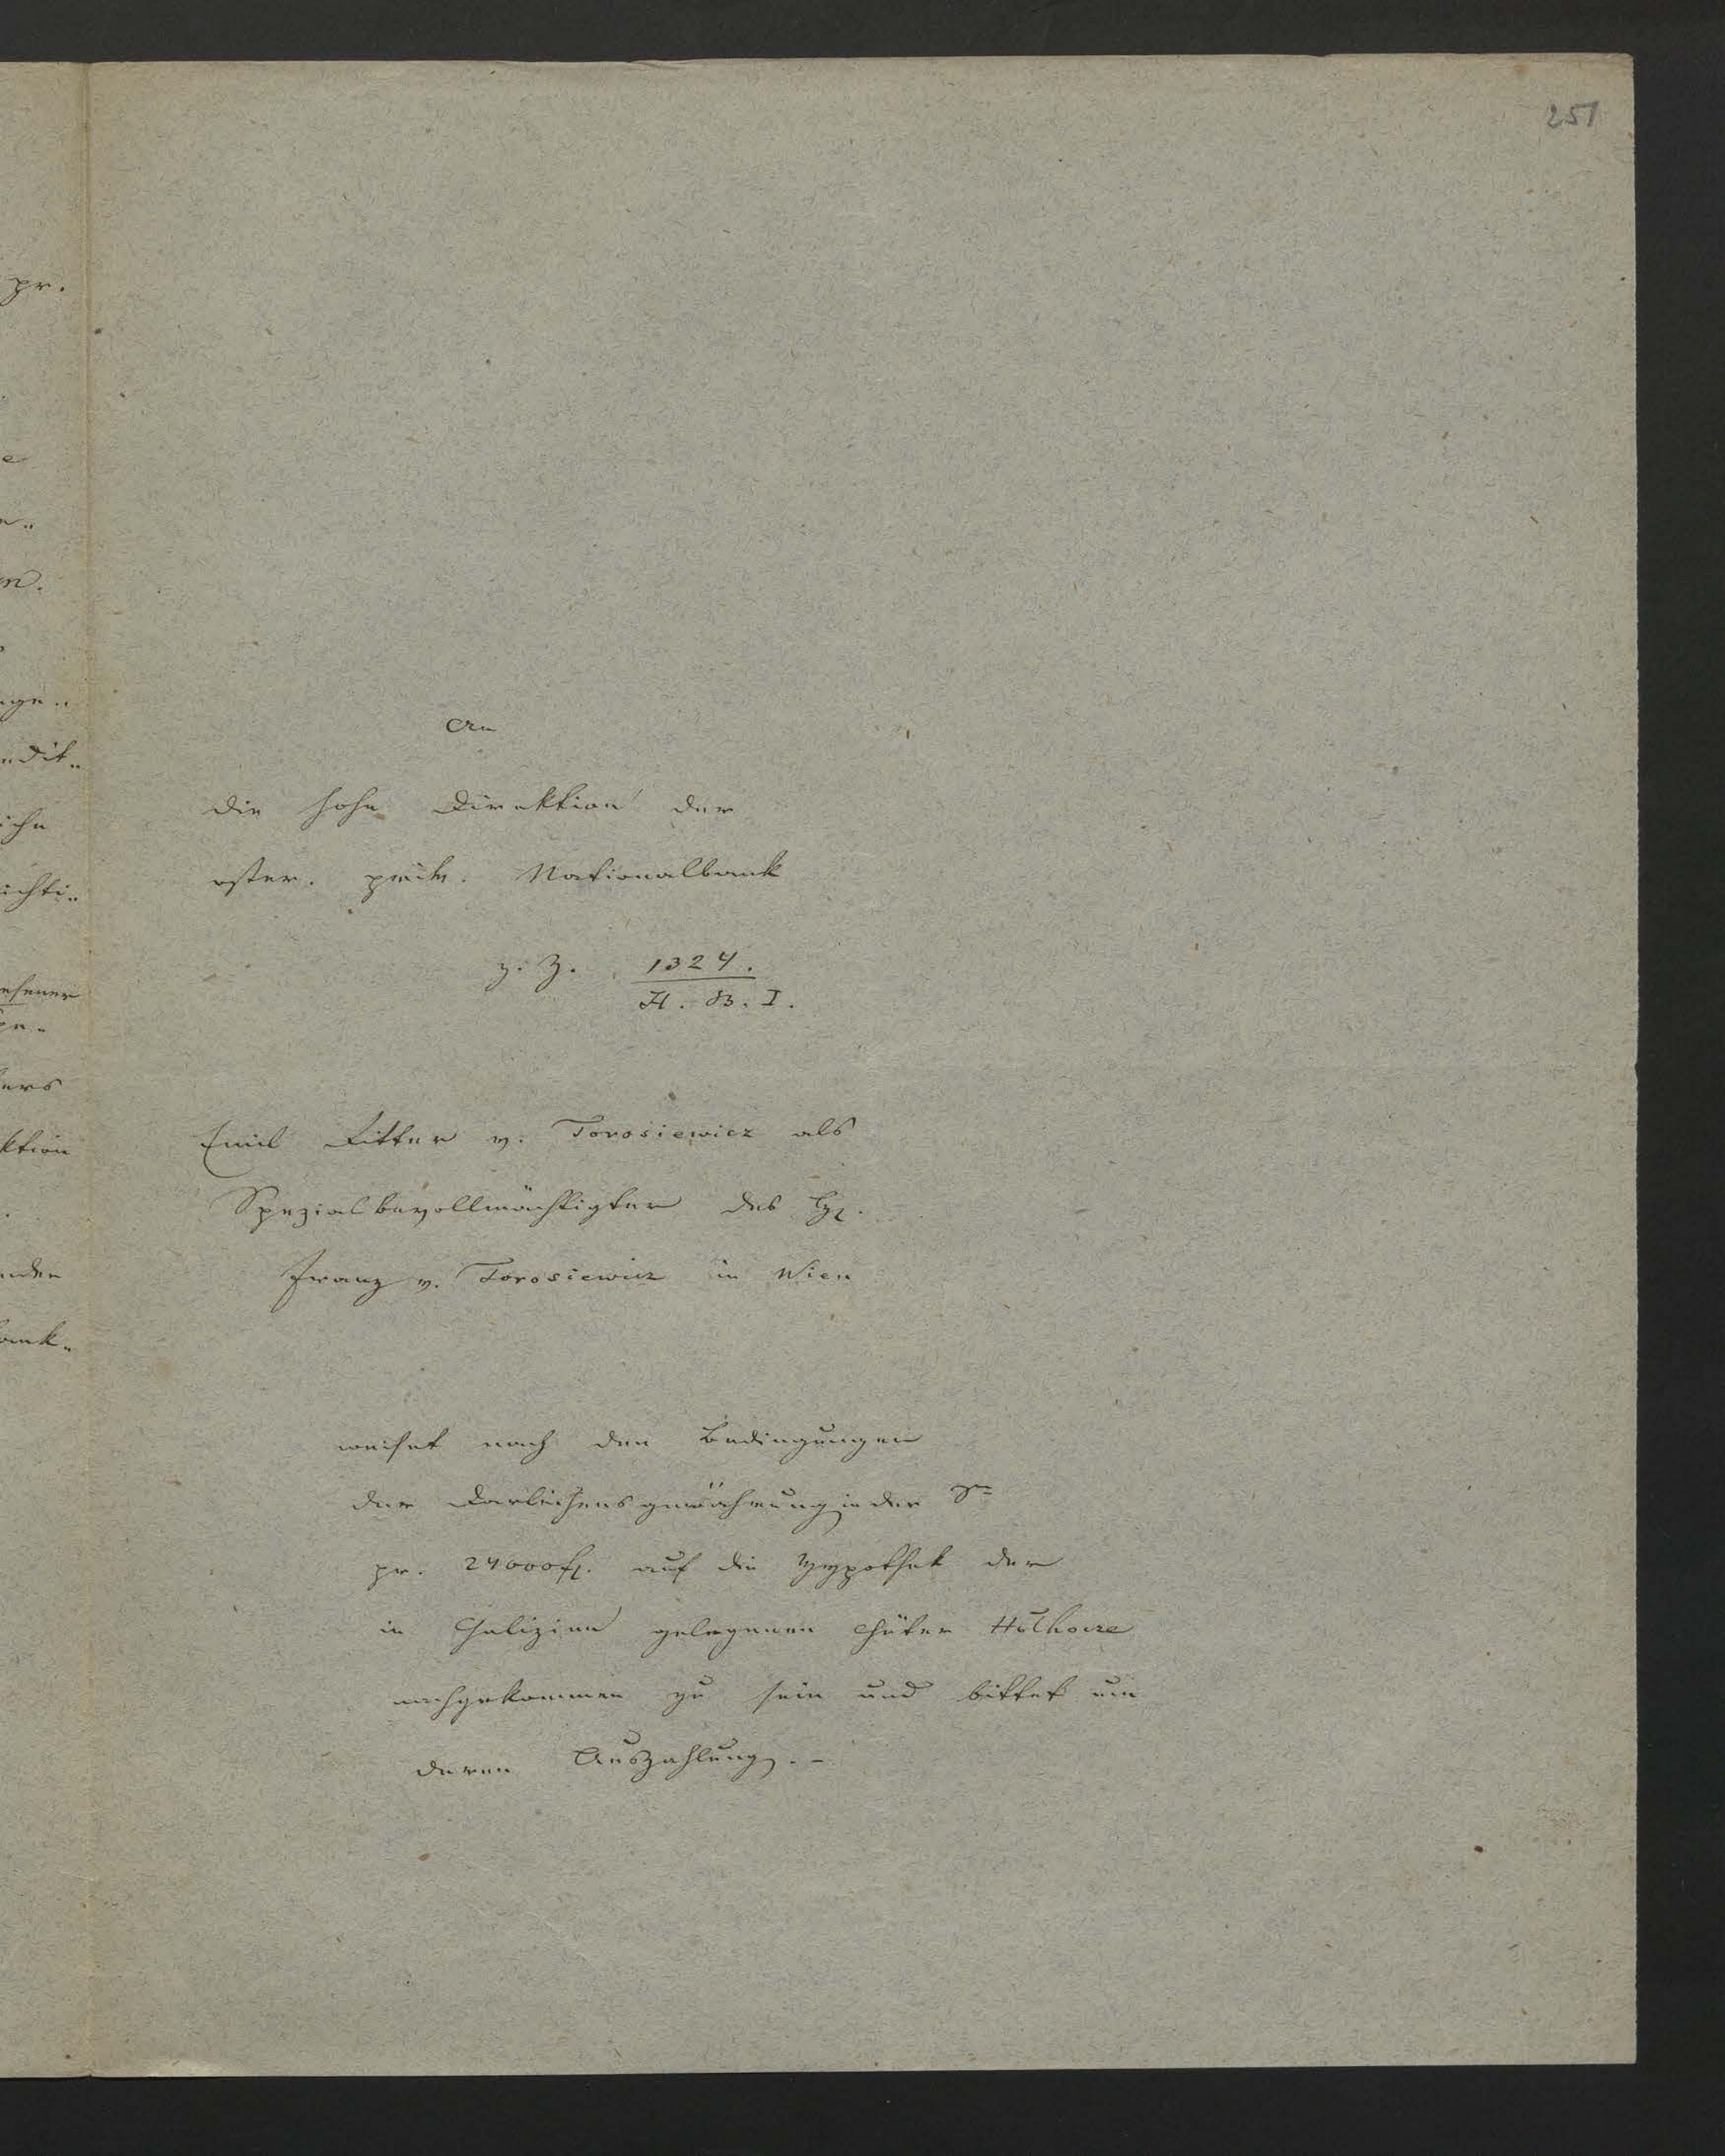 251
An
die hohe Direktion der
öster. priv. Nationalbank
z. Z. 1324.
H. B. I.
Emil Ritter v. Torosiewicz als
Spezialbevollmächtigter des H.
Franz v. Torosiewicz in Wien
weiset nach den Bedingungen
der Darleihensgewährung in der
pr. 24000 fl. auf die Hypothek der
in Galizien gelegenen Güter
nachgekommen zu sein und bittet um
deren Auszahlung. -
pr.